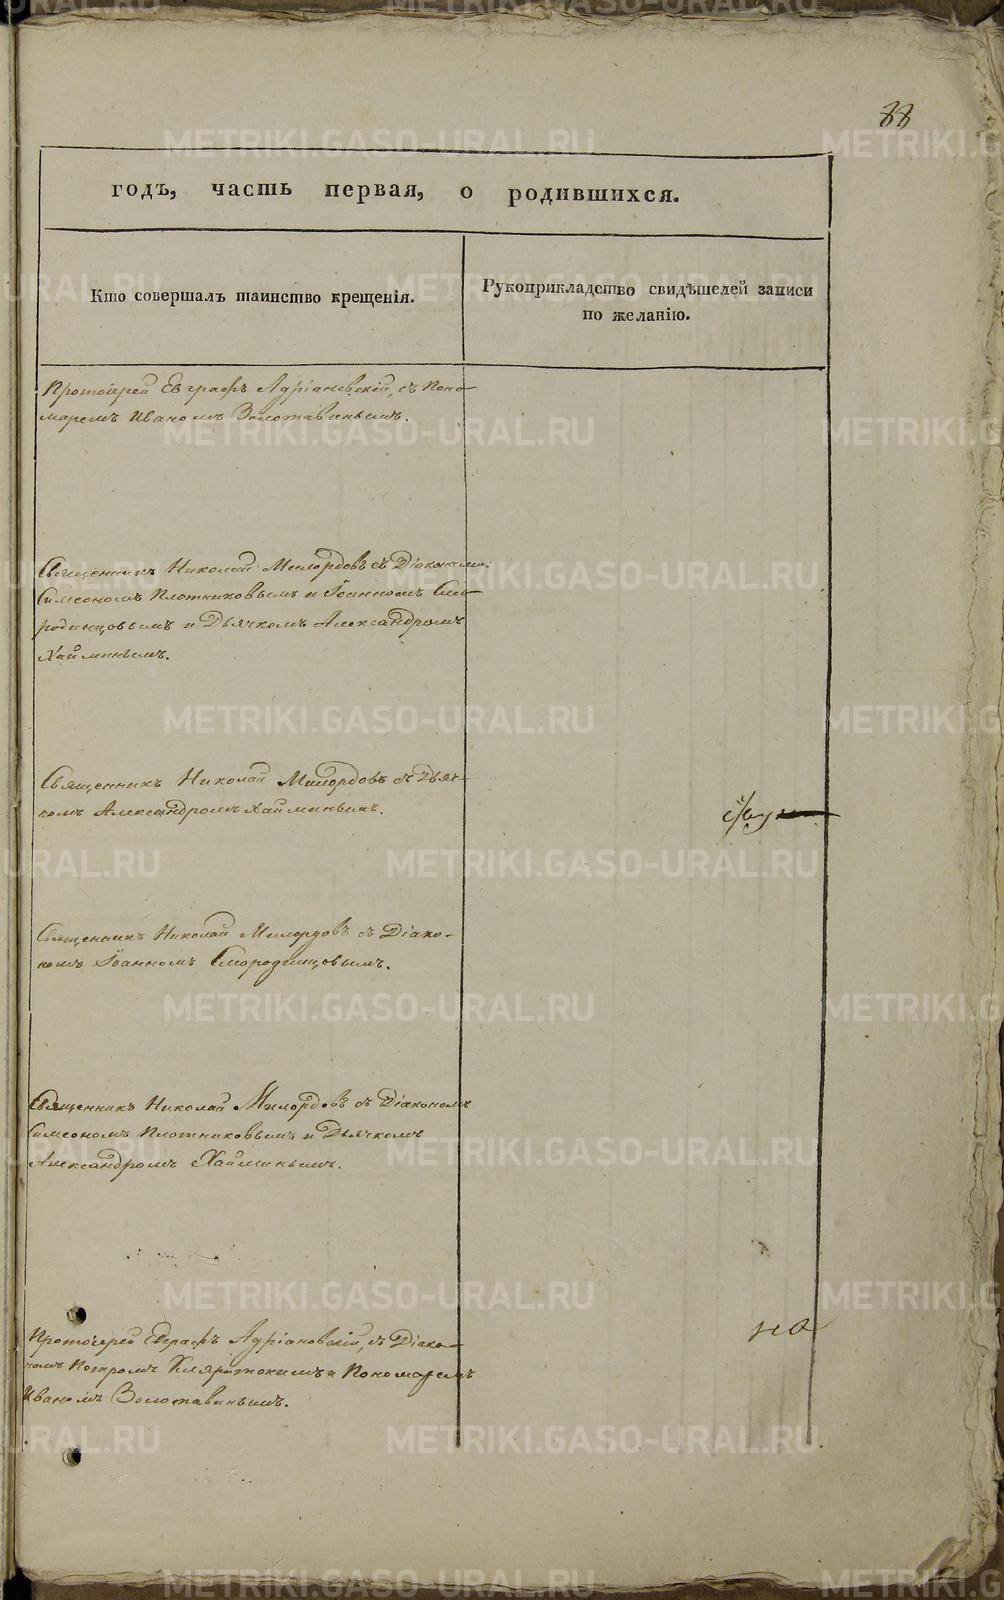 88
годъ, часть первая, о родившихся.
Кто совершалъ таинство крещенія.
Рукоприкладство свидѣтелей записи
по желанію.
Протоіерей Евграфъ Адріановскій, съ Поно-
маремъ Иваномъ Золотавинымъ.
Священникъ Николай Милордовъ съ Діаконами:
Симеономъ Плотниковымъ и Іоанномъ Смо-
родинцовымъ и Дьячкомъ Александромъ
Хайминымъ.
Священникъ Николай Милордовъ съ Дьяч-
комъ Александромъ Хайминымъ.
Священникъ Николай Милордовъ съ Діако-
номъ Іоанномъ Смородинцовымъ.
Священникъ Николай Милордовъ съ Діакономъ
Симеономъ Плотниковымъ и Дьячкомъ
Александромъ Хайминымъ.
Протоіерей Евграфъ Адріановскій, съ Діако-
номъ Петромъ и Пономаремъ
Иваномъ Золотавинымъ.
на
METRIKI.GASO-URAL.RU